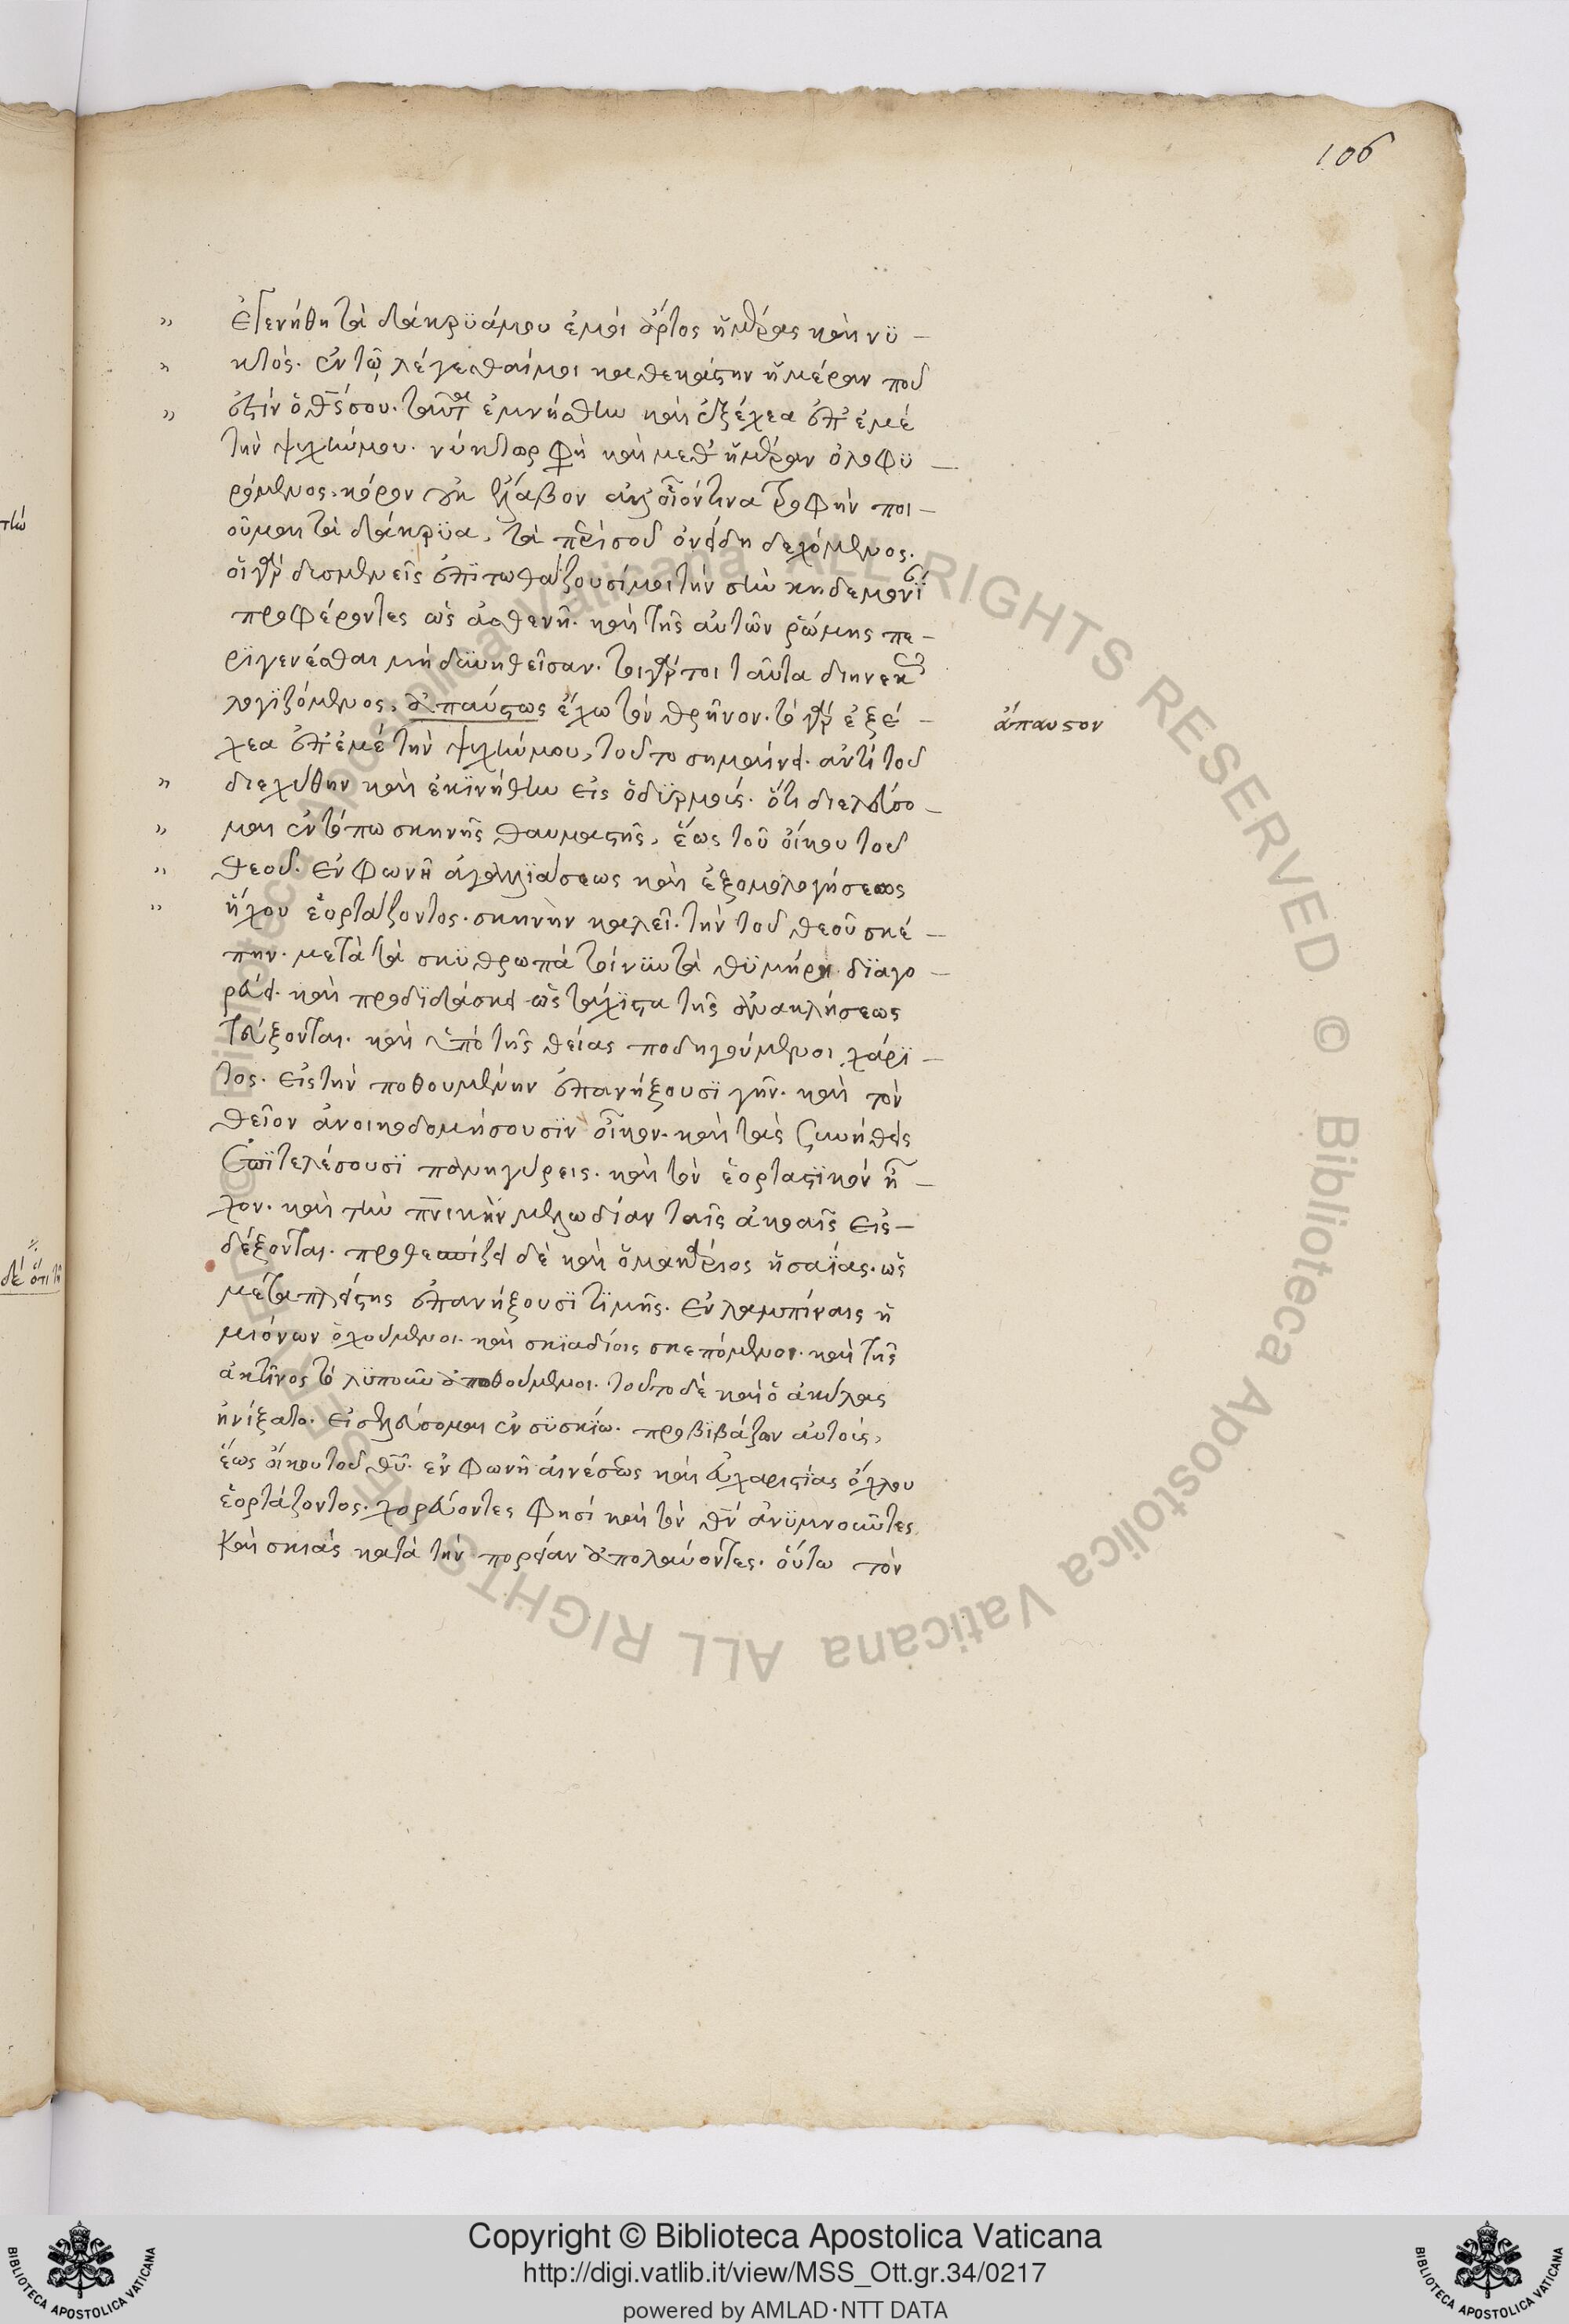 106
" ἐγενήθη τὰ δάκρϋά μου ἐμοὶ ἄρτος ἡμέρας καὶ νϋ –
" κτός. ἐν τῶ λέγεσθαί μοι καθεκάστην ἡμέραν ποῦ
" ἐστὶν ὁ θς σου. ταῦτα ἐμνήσθην καὶ ἐξέχεα ἐπ' ἐμὲ
τὴν ψυχήν μου. νύκτωρ φη καὶ μεθ' ἡμέραν ὀλοφϋ –
ρόμενος, κόρον οὐκ ἔλαβον ἀλλ' οἷόν τινα τροφὴν ποι –
οῦμαι τὰ δάκρϋα, τὰ περὶ σοῦ ὀνείδη δεχόμενος.
οἱ γὰρ δυσμενεῖς ἐπϊτωθάζουσί μοι τὴν σὴν κηδεμονί
προφέροντες ὡς ἀσθενῆ. καὶ τῆς αὐτῶν ῥώμης πε –
ρϊγενέσθαι μὴ δϋνηθεῖσαν. τοιγάρτοι ταῦτα διηνεκῶς
λογϊζόμενος, ἀπαύστως ἔχω τὸν θρῆνον. τὸ γὰρ ἐξέ –
ἄπαυστον
χεα ἐπ' ἐμὲ τὴν ψυχήν μου, τοῦτο σημαίνει. ἀντὶ τοῦ
" διεχύθην καὶ ἐκϊνήθην εἰς ὀδϋρμούς. ὅτι διελεύσο –
" μαι ἐν τόπω σκηνῆς θαυμαστῆς, ἕως τοῦ οἴκου τοῦ
" θεοῦ. ἐν φωνῆ ἀγαλλϊάσεως καὶ ἐξομολογήσεως
" ἤχου ἑορτάζοντος. σκηνὴν καλεῖ. τὴν τοῦ θεοῦ σκέ –
πην. μετὰ τὰ σκϋθρωπὰ τοίνϋν τὰ θϋμήρη. δϊαγο –
ρεύει. καὶ προδϊδάσκει ὡς τάχϊστα τῆς ἀνακλήσεως
τεύξονται. καὶ ὑπὸ τῆς θείας ποδηγούμενοι χάρϊ –
τος. εἰς τὴν ποθουμένην ἐπανήξουσϊ γῆν. καὶ τὸν
θεῖον ἀνοικοδομήσουσϊν οἶκον. καὶ τὰς συνήθεις
ἐπϊτελέσουσϊ πανηγύρεις. καὶ τὸν ἑορταστϊκὸν ἦ –
χον. καὶ τὴν πνικὴν μελωδίαν ταῖς ἀκοαῖς εἰς –
δέξονται. προθεσπίζει δὲ καὶ ὁ μακάριος ἡσαΐας. ὡς
μετὰ πλείστης ἐπανήξουσϊ τϊμῆς. ἐν λαμπίναις ἡ
μιόνων ὀχούμενοι. καὶ σκϊαδίοις σκεπόμενοι. καὶ τῆς
ἀκτῖνος τὸ λϋποῦν ἀπωθούμενοι. τοῦτο δὲ καὶ ὁ ἀκύλας
ἠνίξατο. εἰσελεύσομαι ἐν σϋσκίω. προβϊβάζων αὐτούς,
ἕως οἴκου τοῦ θῦ. ἐν φωνῆ αἰνέσεως καὶ εὐχαριστίας ὄχλου
ἑορτάζοντος. χορεύοντες φησὶ καὶ τὸν θν ἀνϋμνοῦντες,
καὶ σκιᾶς κατὰ τὴν πορείαν ἀπολαύοντες. οὕτω τὸν
τὴν
δὲ ὅτι
Copyright © Biblioteca Apostolica Vaticana
http://digi.vatlib.it/view/MSS_Ott.gr.34/0217
powered by AMLAD·NTT DATA
BIBLIOTECA APOSTOLICA VATICANA
BIBLIOTECA APOSTOLICA VATICANA
© Biblioteca Apostolica Vaticana ALL RIGHTS RESERVED © Biblioteca Apostolica Vaticana ALL RIGHTS RESERVED